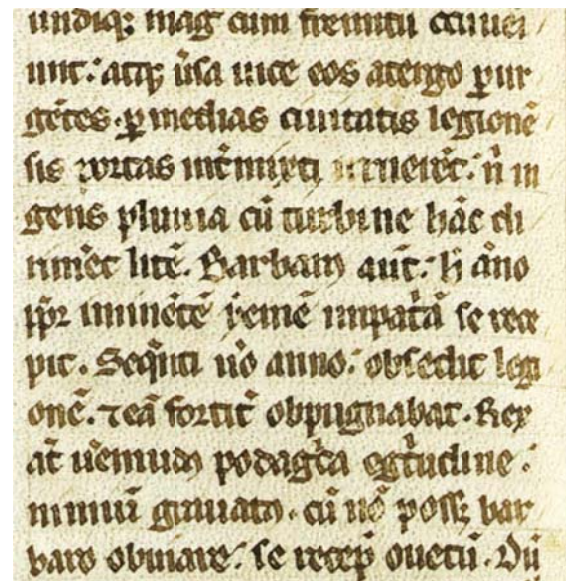 undiq; mag̃ cum fremitu ꝯcurrer
unt: atq; ũsa uice eos atergo ꝑur
gẽtes ꝑ medias ciuitatis legionẽ
sis portas int̃mixti irruerẽt: ñ in
gens pluuia cũ turbine hãc di
rimẽt litẽ. Barbarꝰ aut̃: h̃ ãno
iminẽtẽ yemẽ patã se rece
pit. Seq̃nti ũo anno: obsedit legi
onẽ. ⁊eã fortit̃ obpugnabat. Rex
at̃ uemudꝰ podag̃ca egritudine:
nimiũ grauatꝰ. cũ nõ poss; bar
baro obuiare: se recep̃ ouetũ. Dũ